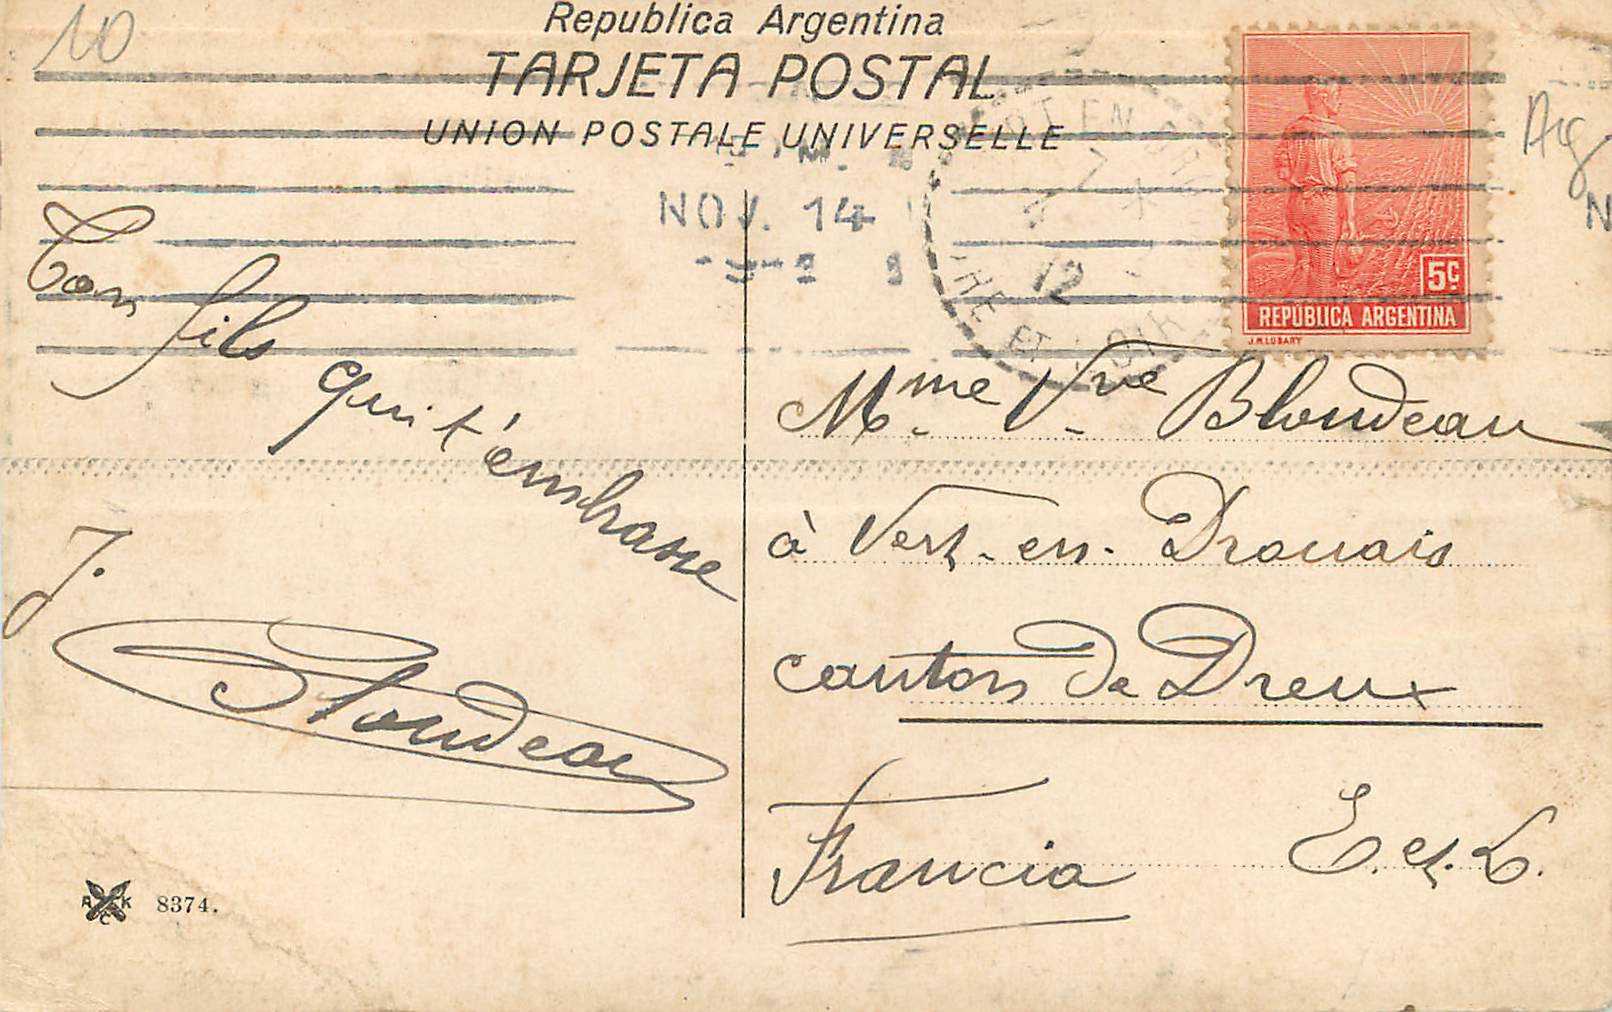 10
Republica Argentina
TARJETA POSTAL
UNION POSTALE UNIVERSELLE
Arg
NOV. 14
12
5C
REPÚBLICA ARGENTINA
J.M.LUBARY
Ton fils
qui t'embrasse
J. Blondeau
Mme Vve Blondeau
à Vert-en-Drouais
canton de Dreux
Francia E. et. L.
A C K 8374.